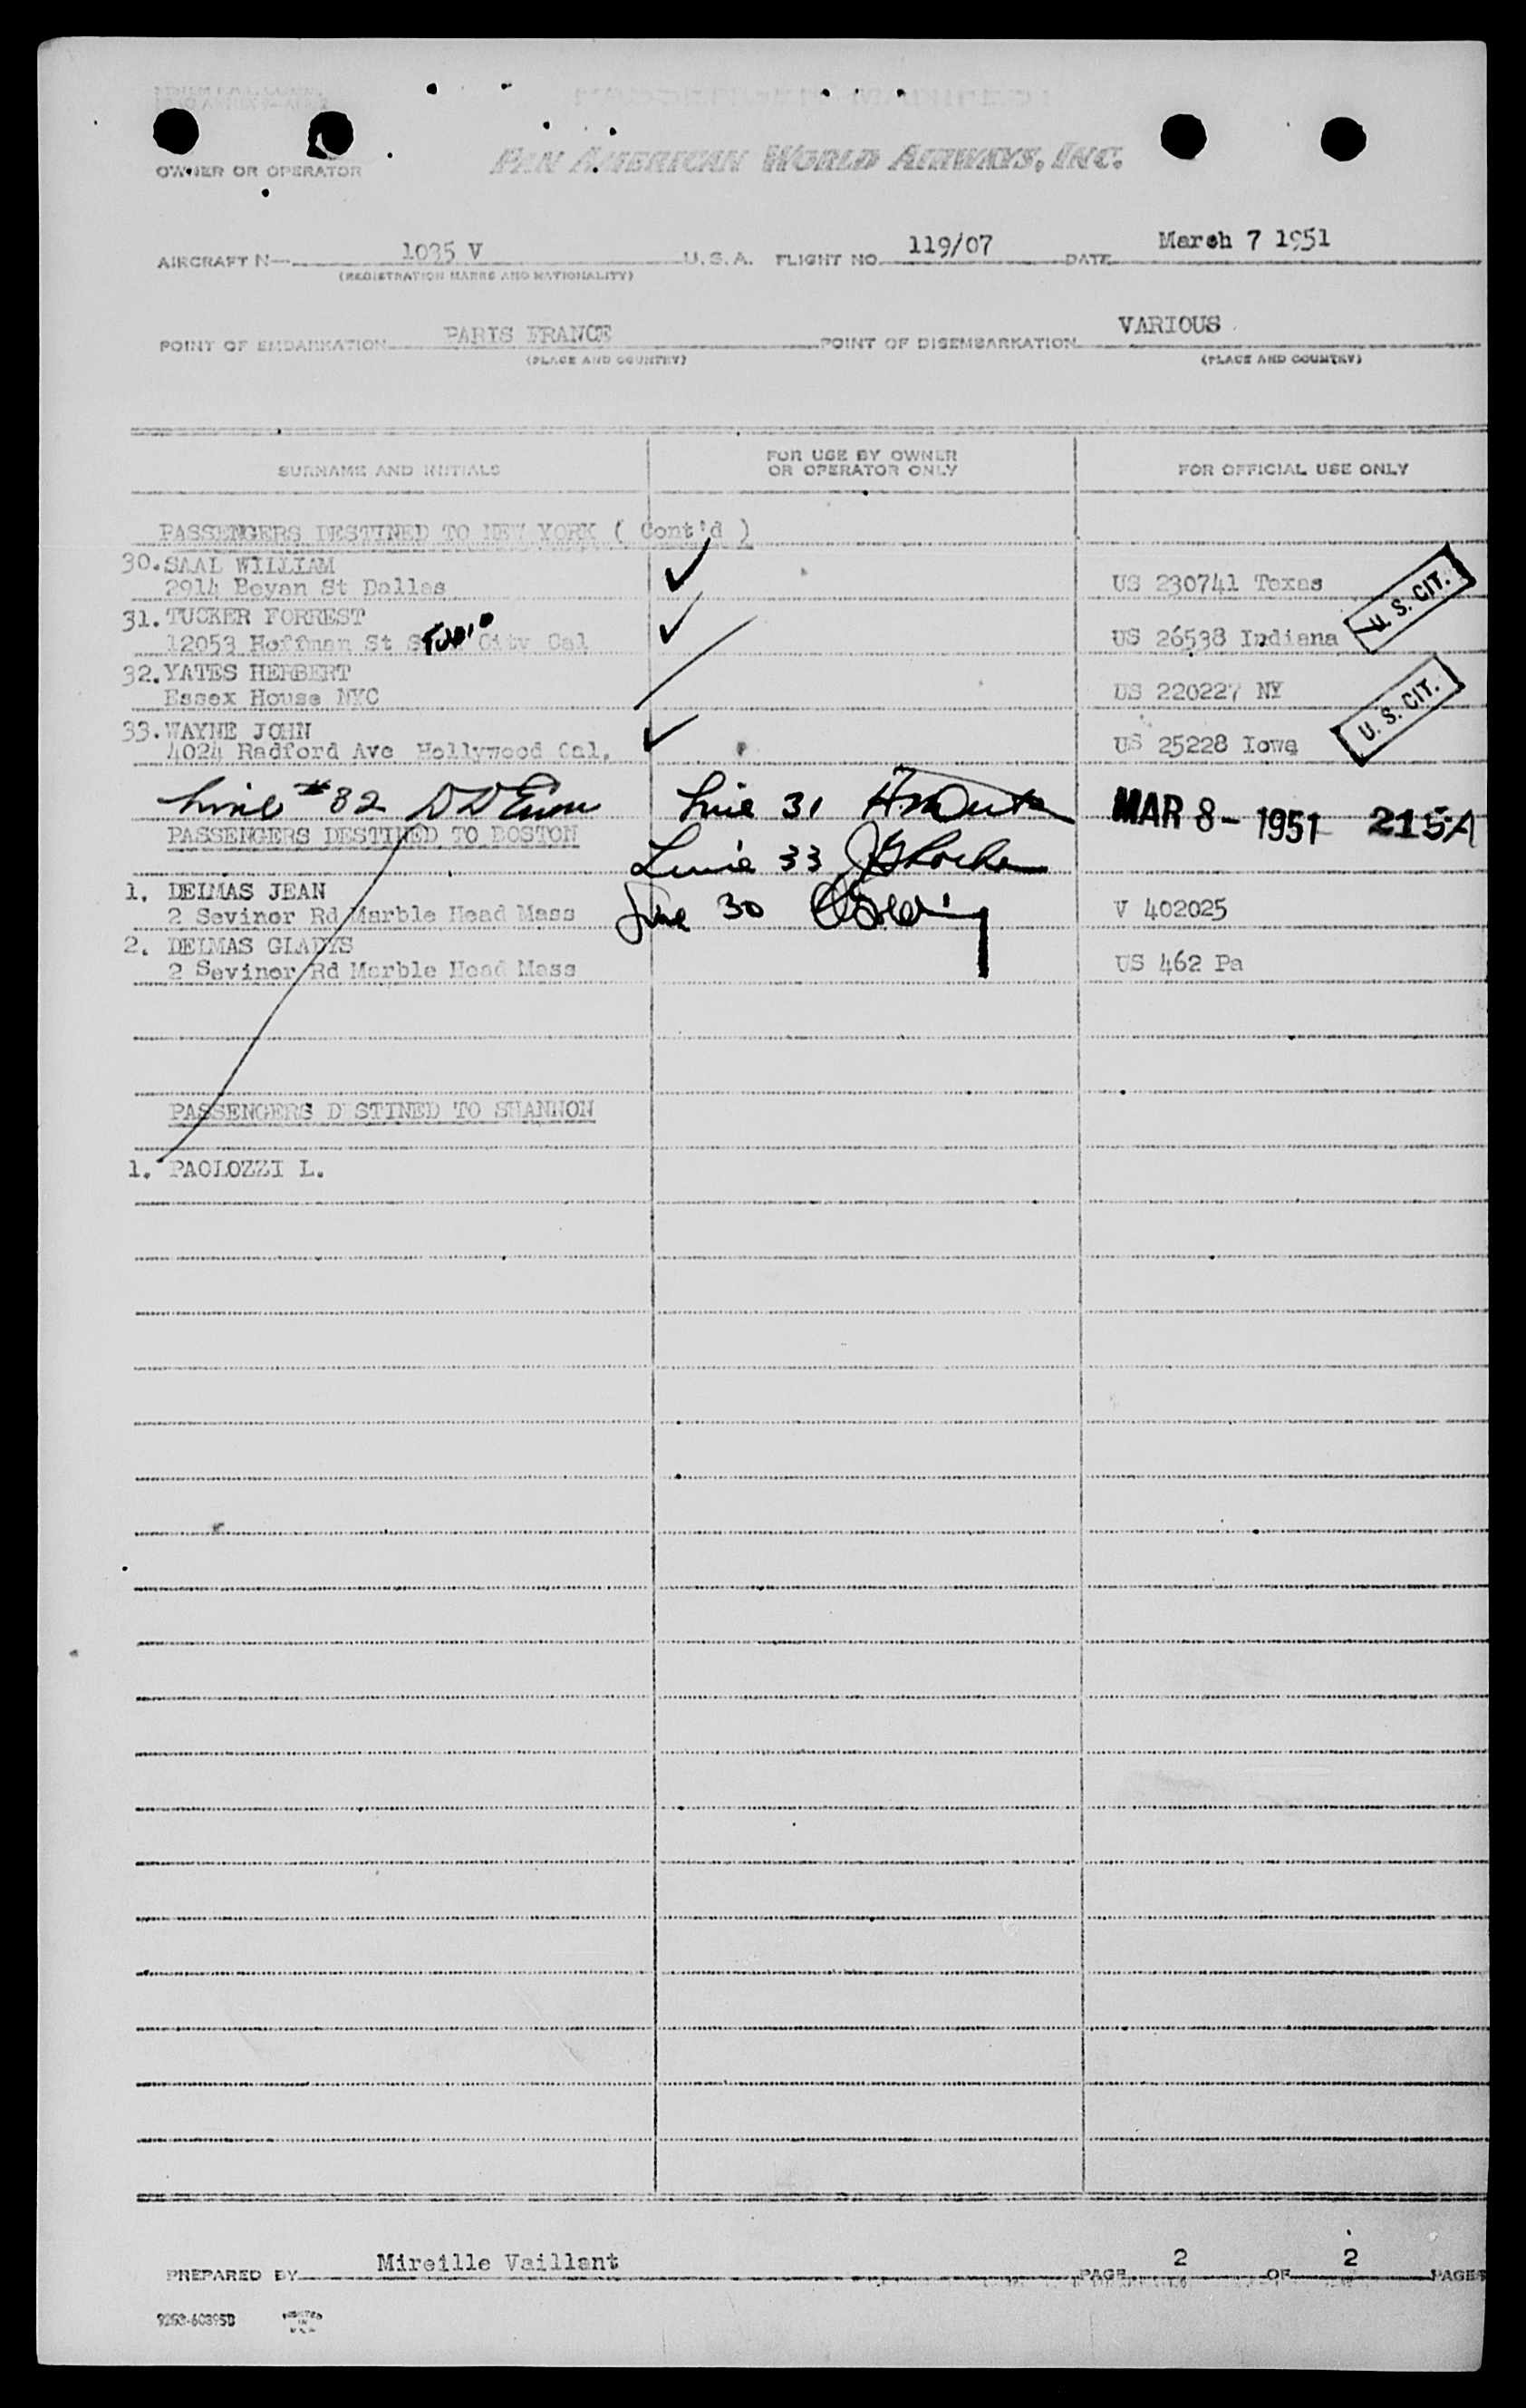 OWNER OR OPERATOR PAN AMERICAN WORLD AIRWAYS, INC.
AIRCRAFT N 1035 V U.S.A. FLIGHT NO. 119/07 DATE March 7 1951
(REGISTRATION MARKS AND NATIONALITY)
POINT OF EMBARKATION PARIS FRANCE POINT OF DISEMBARKATION VARIOUS
(PLACE AND COUNTRY) (PLACE AND COUNTRY)
SURNAME AND INITIALS FOR USE BY OWNER OR OPERATOR ONLY FOR OFFICIAL USE ONLY
PASSENGERS DESTINED TO NEW YORK ( Cont'd )
30. SAAL WILLIAM
2914 Bevan St Dallas US 230741 Texas
U. S. CIT.
31. TUCKER FORREST
12053 Hoffman St Studio City Cal US 26538 Indiana
32. YATES HERBERT
Essex House NYC US 220227 NY
U. S. CIT.
33. WAYNE JOHN
4024 Radford Ave Hollywood Cal. US 25228 Iowa
Line #32 Line 31 MAR 8 - 1951 215A
PASSENGERS DESTINED TO BOSTON
Line 33
1. DELMAS JEAN
2 Sevinor Rd Marble Head Mass Line 30 V 402025
2. DELMAS GLADYS
2 Sevinor Rd Marble Head Mass US 462 Pa
PASSENGERS D STINED TO SHANNON
1. PAOLOZZI L.
PREPARED BY Mireille Vaillant PAGE 2 OF 2 PAGES
9253-60395B PRINTED IN